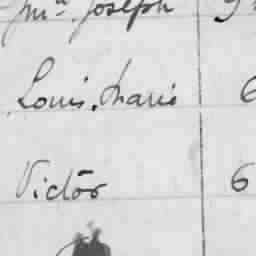 Jn. Joseph 9
Louis, Marie 6
Victor 6